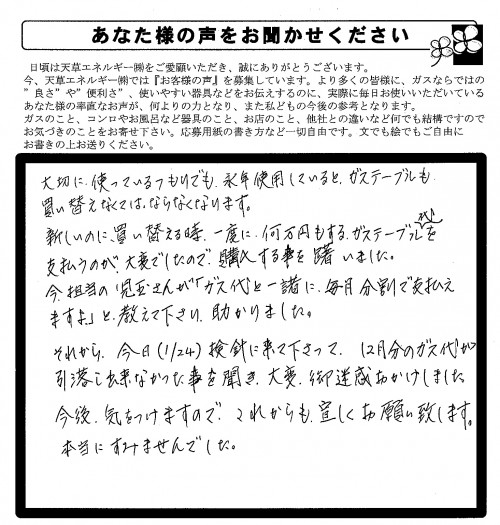 あなた様の声をお聞かせください
日頃は天草エネルギー㈱をご愛顧いただき、誠にありがとうございます。
今、天草エネルギー㈱では『お客様の声』を募集しています。より多くの皆様に、ガスならではの
”良さ”や”便利さ”、使いやすい器具などをお伝えするのに、実際に毎日お使いいただいている
あなた様の率直なお声が、何よりの力となり、また私どもの今後の参考となります。
ガスのこと、コンロやお風呂など器具のこと、お店のこと、他社との違いなど何でも結構ですので
お気づきのことをお寄せ下さい。応募用紙の書き方など一切自由です。文でも絵でもご自由に
お書きの上お送りください。
大切に、使っているつもりでも、永年使用していると、ガステーブルも
買い替えなくては、ならなくなります。
新しいのに、買い替える時、一度に、何万円もする、ガステーブル代を
支払うのが、大変でしたので、購入する事を躊いました。
今、担当の児玉さんが「ガス代と一諸に、毎月分割で支払え
ますよ」と、教えて下さり、助かりました。
それから、今日(1/24)検針に来て下さって、12月分のガス代が
引落し出来なかった事を聞き、大変、御迷惑おかけしました
今後、気をつけますので、これからも、宜しくお願い致します。
本当にすみませんでした。